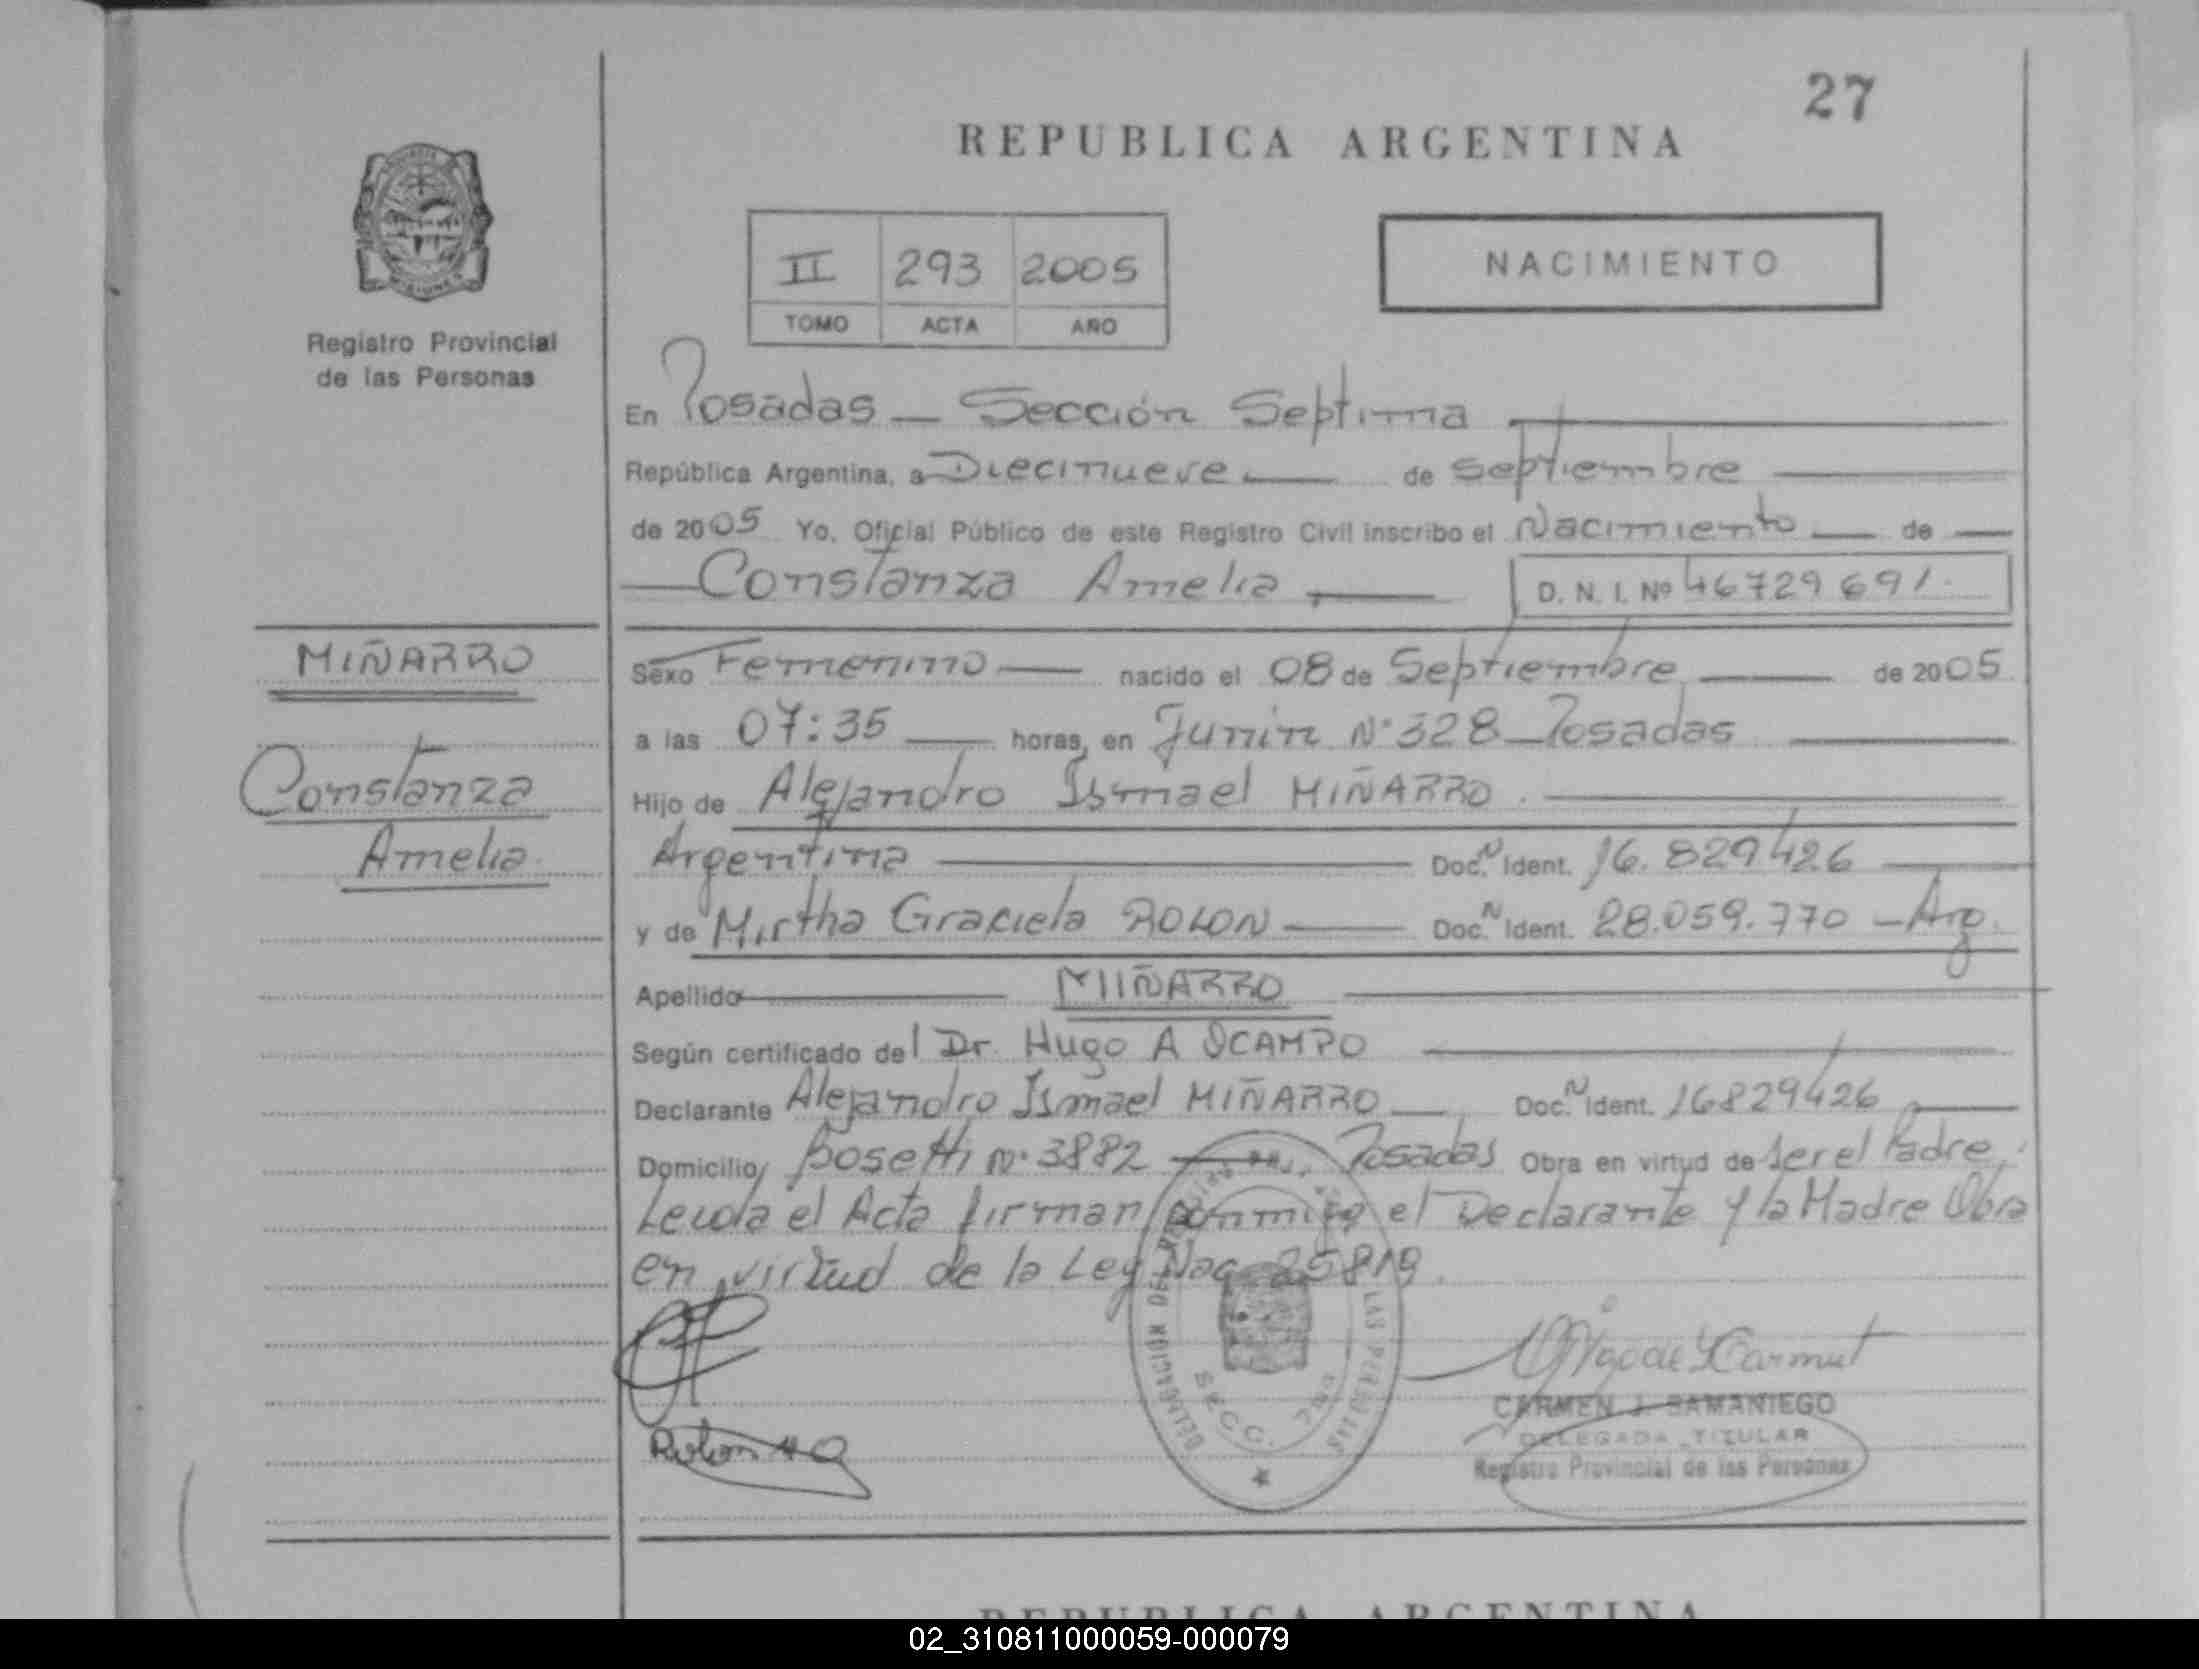 27
REPUBLICA ARGENTINA
II 293 2005
TOMO ACTA AÑO
NACIMIENTO
Registro Provincial
de las Personas
En Posadas — Sección Septima
República Argentina, a Diecinueve de Septiembre
de 2005 Yo, Oficial Público de este Registro Civil inscribo el Nacimiento de
Constanza Amelia D. N. I. Nº 46729691.
MIÑARRO
Constanza
Amelia
Sexo Femenino nacido el 08 de Septiembre de 2005
a las 07:35 horas, en Junín Nº 328 — Posadas
Hijo de Alejandro Ismael MIÑARRO.
Argentina Doc. N Ident. 16.829426
y de Mirtha Graciela ROLON Doc. N Ident. 28.059.770 — Arg.
Apellido MIÑARRO
Según certificado del Dr. Hugo A OCAMPO
Declarante Alejandro Ismael MIÑARRO Doc. N Ident. 16829426
Domicilio Bosetti Nº 3882 — Posadas Obra en virtud de ser el Padre.
Leida el Acta firman conmigo el Declarante y la Madre Obra
en virtud de la Ley Nac. 25819.
DELEGACION DEL REGISTRO LAS PERSONAS
SECC. 7MA
Rolon M G
CARMEN J. SAMANIEGO
DELEGADA TITULAR
Registro Provincial de las Personas
REPUBLICA ARGENTINA
02_310811000059-000079